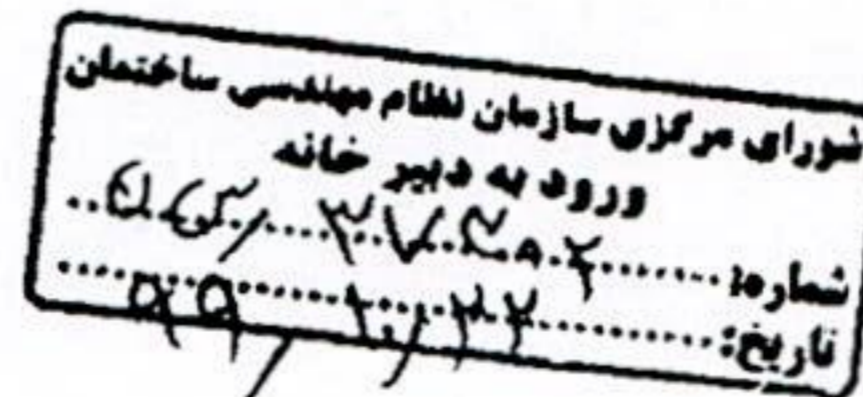 شورای مرکزی سازمان نظام مهندسی ساختمان
ورود به دبیر خانه
شماره:
تاریخ: